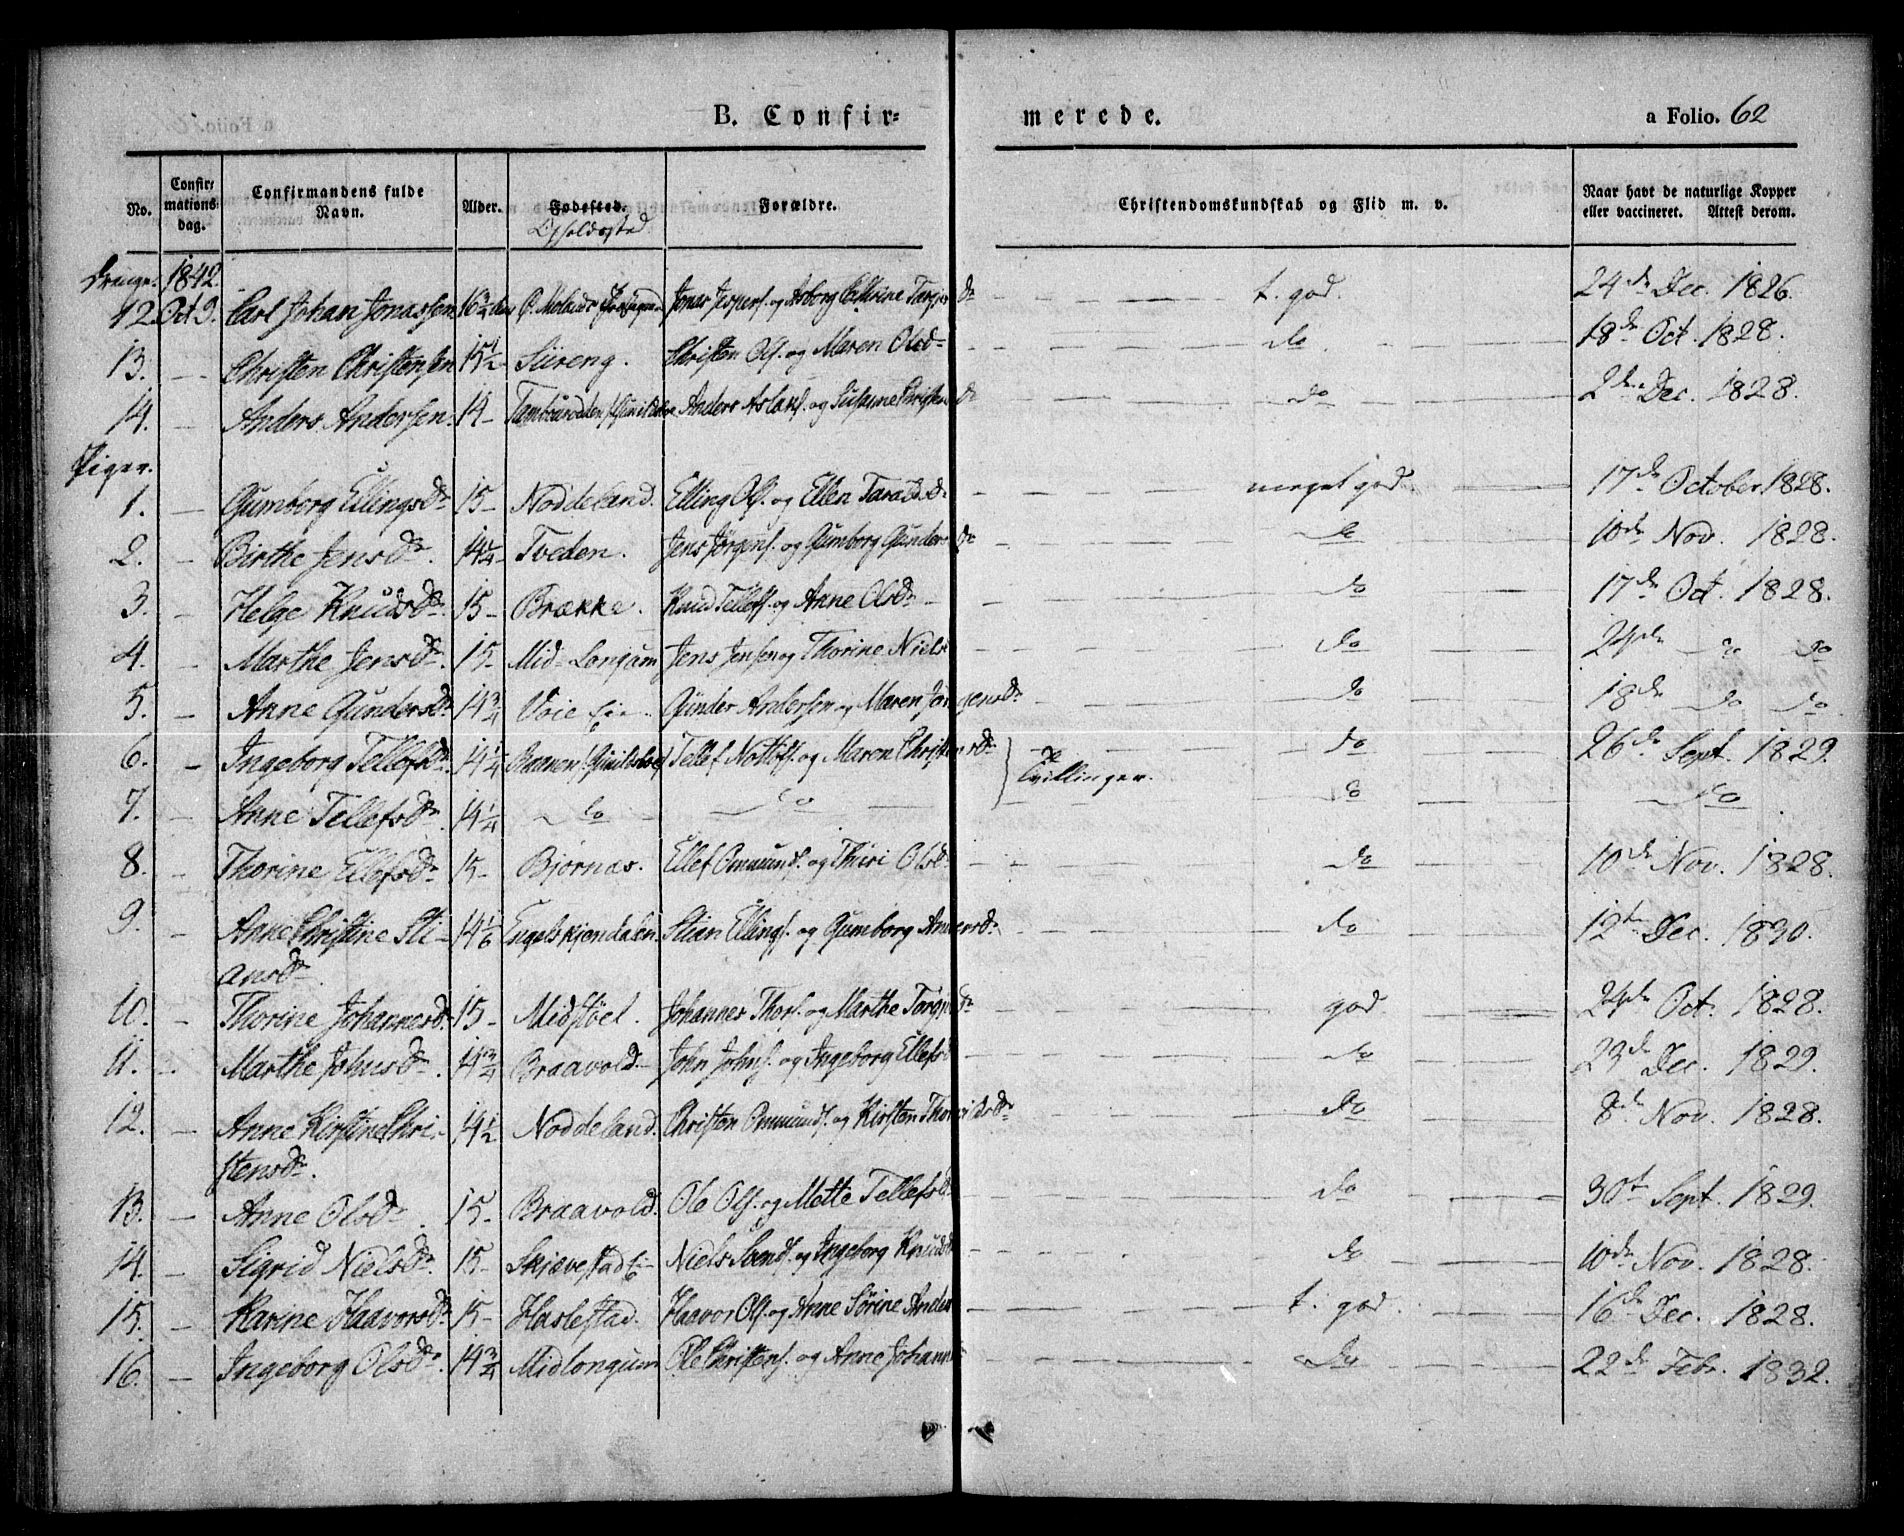 B. Confir= merede. a Folio. 62
No. Confir= mations dag. Confirmandens fulde Navn. Alder. Fødested. Opholdssted Forældre. Christendomskundskab og Flid m. v. Naar havt de naturlige Kopper eller vaccineret. Attest derom.
Drenge. 1842.
12. Oct 9. Carl Johan Jonassen 16 3/4 Jonas Jespers. og Asborg Cathrine d. t. god. 24de Dec. 1826.
13. — Christen Christensen 15 1/2 Siireng. Christen Ols. og Maren Olsd. do 18de Oct. 1828.
14. — Anders Andersen. 14 - Anders Aslaks. og Susanne Christensd. do 2de Dec. 1828.
Piger.
1. — Gumborg Ellingsd. 15 - Noddeland. Elling Ols. og Ellen Taraldsd. meget god. 17de October 1828.
2. — Birthe Jensd. 14 1/4 Tveden. Jens Jørgens. og Gumborg Gundersd. do 10de Nov. 1828.
3. — Helge Knudsd. 15 - Brække. Knud Tellefs. og Anne Olsd. do 17de Oct. 1828.
4. — Marthe Jensd. 15 - Mid-Longum Jens Jensen og Thorine Niels do 24de do do
5. — Anne Gundersd. 14 3/4 Voie Eie Gunder Andersen og Maren Jørgensd. do 18de do do
6. — Ingeborg Tellefsd. 14 1/4 Tellef Nottofs. og Maren Christensd. } Tvillinger. do 26de Sept. 1829.
7. — Anne Tellefsd. 14 1/4 do do do do
8. — Thorine Ellefsd. 15 - Bjørnas. Ellef Ommunds. og Thuri Olsd. do 10de Nov. 1828.
9. — Anne Christine Sti- 14 1/6 Engelskjendalen. Stian Ellings. og Gumborg Andersd. do 12te Dec. 1830.
ansd.
10. — Thorine Johannesd. 15 - Midstøel. Johannes Thors. og Marthe d. god. 24de Oct. 1828.
11. — Marthe Johnsd. 14 3/4 Braavold John Johns. og Ingeborg Ellefsd. do 23de Dec. 1829.
12. — Anne Kirstine Chri- 14 1/2 Noddeland. Christen Ommunds. og Kirsten d. do 8de Nov. 1828.
stensd.
13. — Anne Olsd. 15 - Braavold. Ole Ols. og Mette Tellefsd. do 30t Sept. 1829.
14. — Sigrid Nielsd. 15 - Skjævestad Niels Svends. og Ingeborg Knudsd. do 10de Nov. 1828.
15. — Karine Haavorsd. 15 - Haslestad. Haavor Ols. og Anne Sørine Anders t. god. 16de Dec. 1828.
16. — Ingeborg Olsd. 14 3/4 Midlongum Ole Christens. og Anne Johann do 22de Febr. 1832.